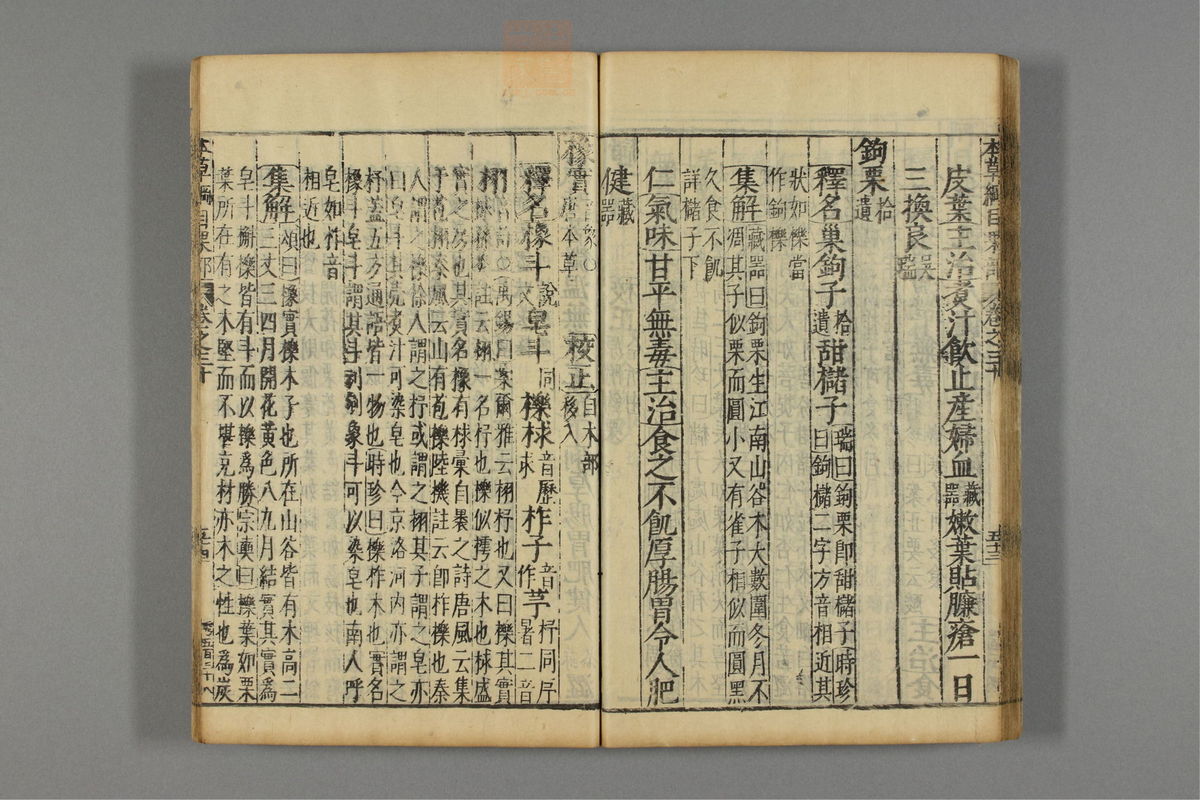 本草綱目果部 卷之三十 五十三
皮葉主治煑汁飲止産婦血藏器嫩葉貼臁瘡一日
三換良吳瑞
鉤栗拾遺
釋名巢鉤子拾遺甜櫧子瑞曰鉤栗卽甜櫧子時珍曰鉤櫧二字方音相近其
狀如櫟當作鉤櫟
集解藏器曰鉤栗生江南山谷木大數圍冬月不凋其子似栗而圓小又有雀子相似而圓黑
久食不飢詳櫧子下
仁氣味甘平無毒主治食之不飢厚腸胃令人肥
健藏器
橡實音象○唐本草 校正自木部移入
釋名橡斗說文皂斗同上櫟梂音歷求柞子音作芧杼同序暑二音
栩音許○禹錫曰案爾雅云栩杼也又曰櫟其實梂註云栩一名杼也櫟似樗之木也梂盛
實之房也其實名橡有梂彙自裹之詩唐風云集于苞栩秦風云山有苞櫟陸機註云卽柞櫟也秦
人謂之櫟徐人謂之杼或謂之栩其子謂之皂亦曰皂斗其殼煑汁可染皂也今京洛河內亦謂之
杼蓋五方通語皆一物也時珍曰櫟柞木也實名橡斗皂斗謂其斗刓剜象斗可以染皂也南人呼
皂如柞音相近也
集解頌曰橡實櫟木子也所在山谷皆有木高二三丈三四月開花黃色八九月結實其實爲
皂斗槲櫟皆有斗而以櫟爲勝宗奭曰櫟葉如栗葉所在有之木堅而不堪充材亦木之性也爲炭
本草綱目果部 卷之三十 五十四